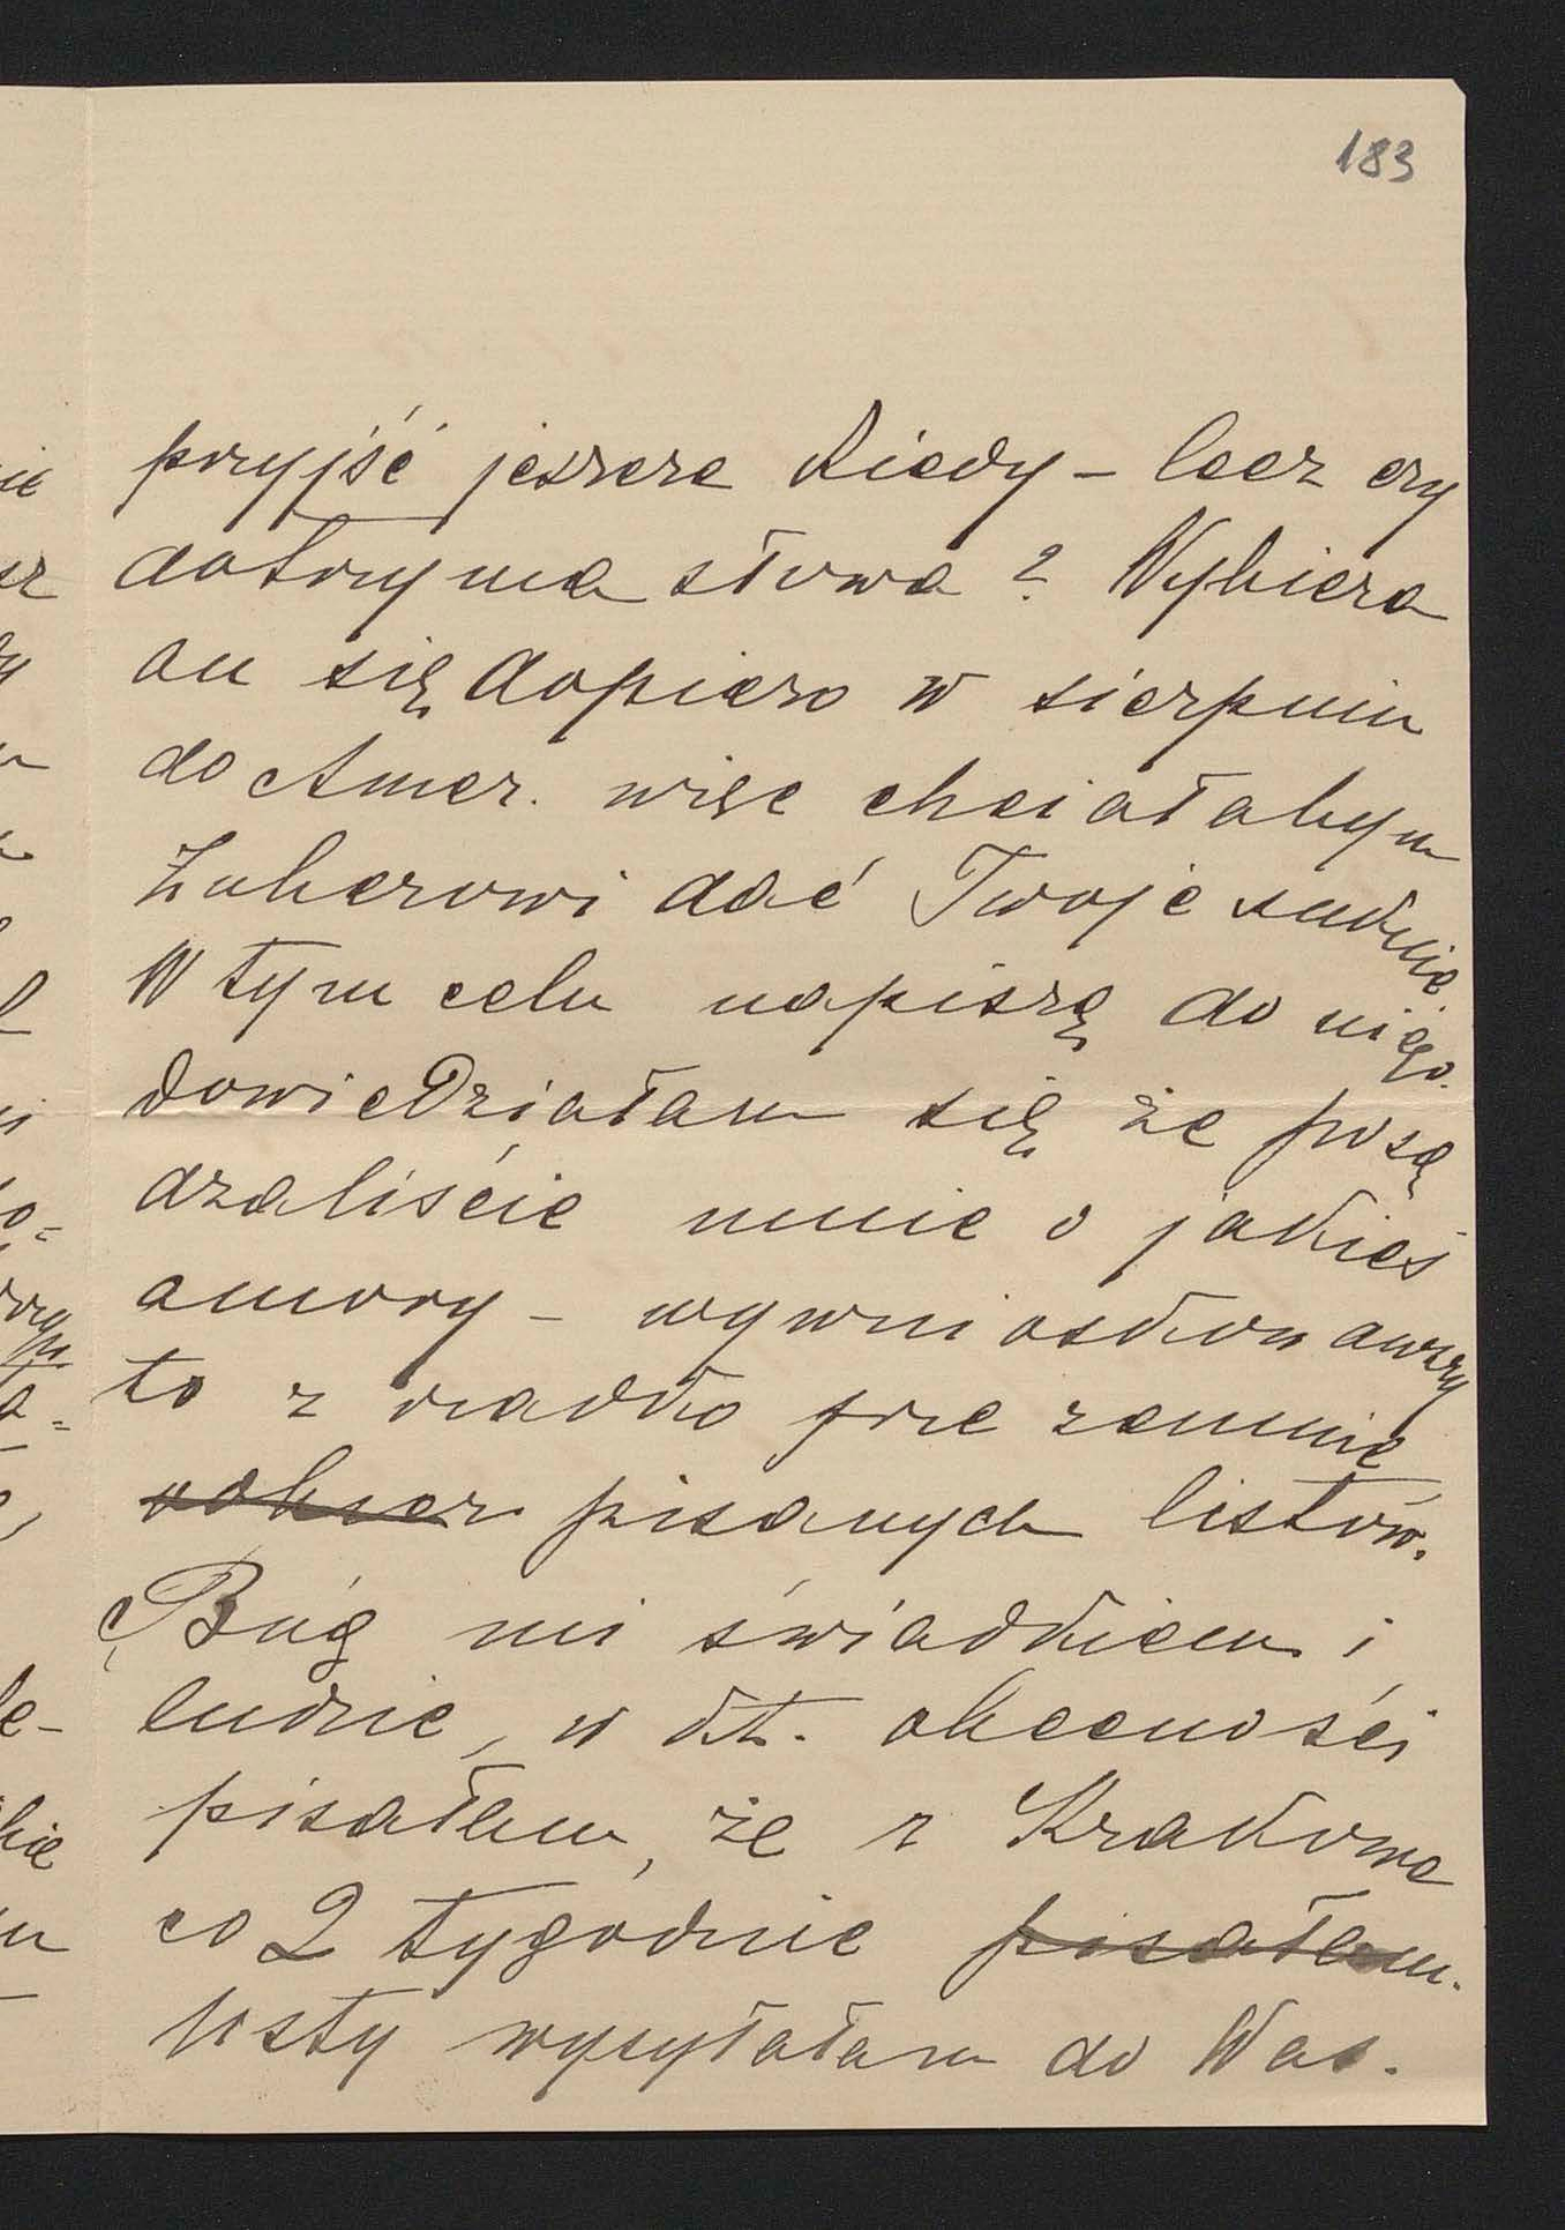 183
przyjść jeszcze kiedy – lecz czy
dotrzyma słowa? Wybiera
on się dopiero w sierpniu
do Amer. więc chciałabym
Żuberowi dać Twoje suknie.
W tym celu napiszę do niego.
Dowiedziałam się że posą
dzaliście mnie o jakieś
amory – wywnioskowawszy
to z rzadko prze zemnie
pisanych listów.
Bóg mi świadkiem i
ludzie, w kt. obecności
pisałem, że z Krakowa
co 2 tygodnie pisałem.
listy wysyłałam do Was.